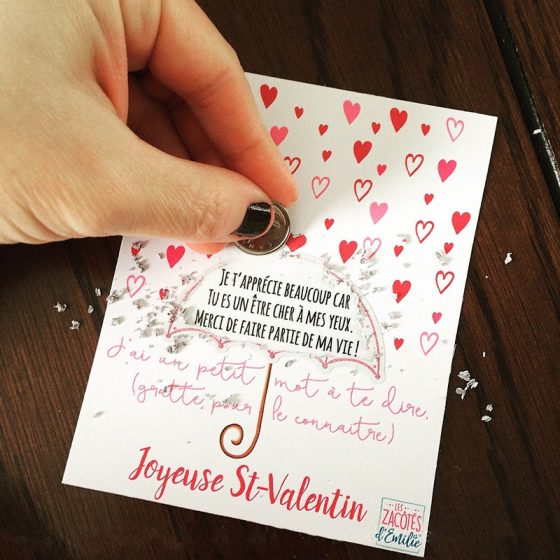 JE T'APPRÉCIE BEAUCOUP CAR
TU ES UN ÊTRE CHER À MES YEUX.
MERCI DE FAIRE PARTIE DE MA VIE !
J'ai un petit mot à te dire.
(gratte pour le connaître)
Joyeuse St-Valentin
LES
ZACÔTÉS
d'Émilie